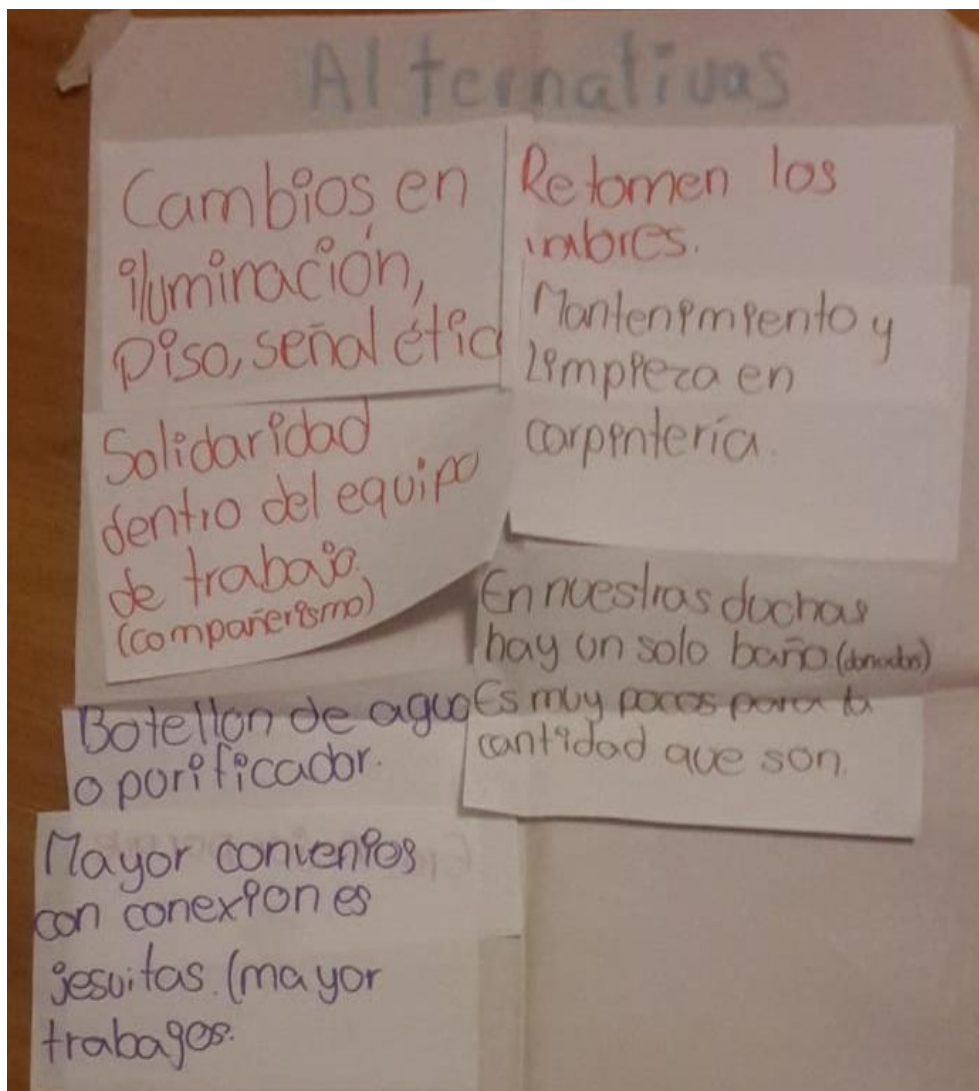 Alternativas
Cambios en
iluminación,
piso, señal étic
Solidaridad
dentro del equipo
de trabajo
(compañerismo)
Botellon de agua
o purificador.
Mayor convenios
con conexiones
jesuitas. (mayor
trabagos.
Retomen los
Mantenimiento y
Limpieza en
carpintería.
En nuestras duchas
hay un solo baño (donados)
Es muy pocos para la
cantidad que son.